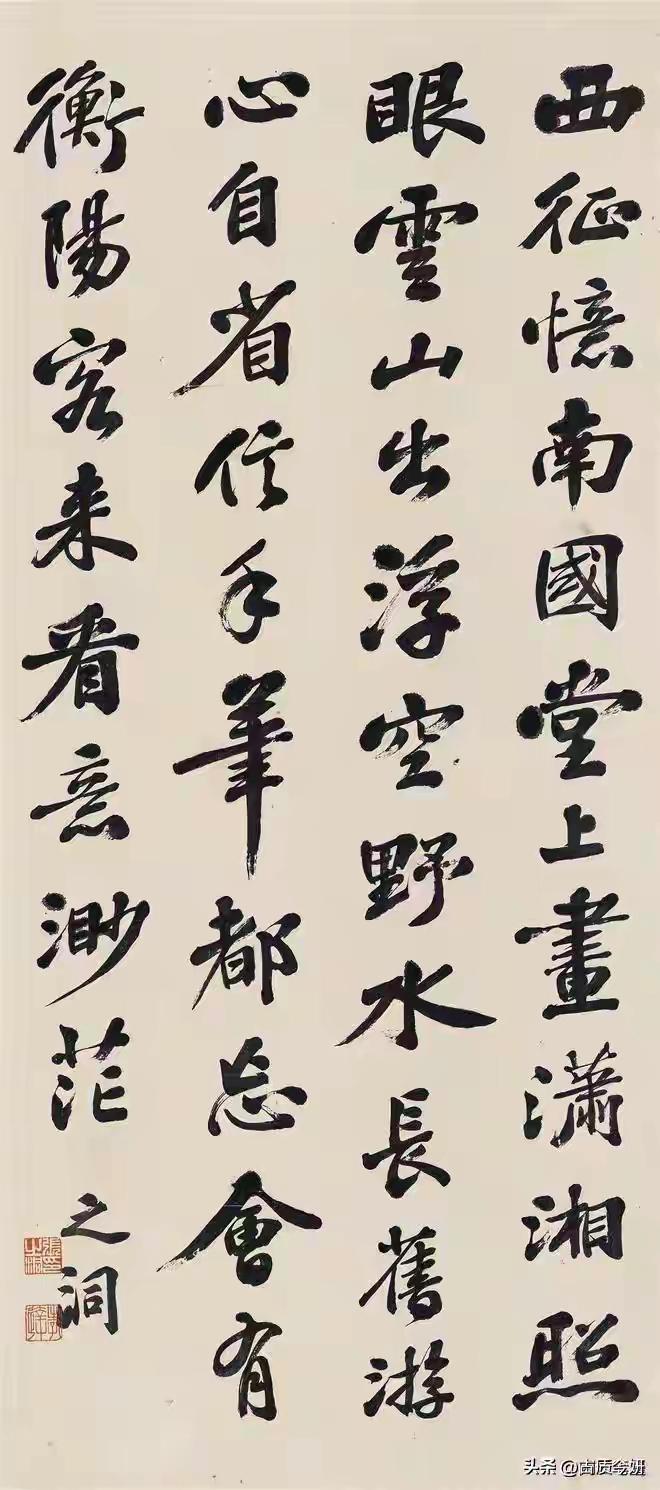 西征憶南國堂上畫瀟湘照
眼雲山出浮空野水長舊游
心自省信手筆都忘會有
衡陽客來看意渺茫
之洞
頭条 @古质今妍